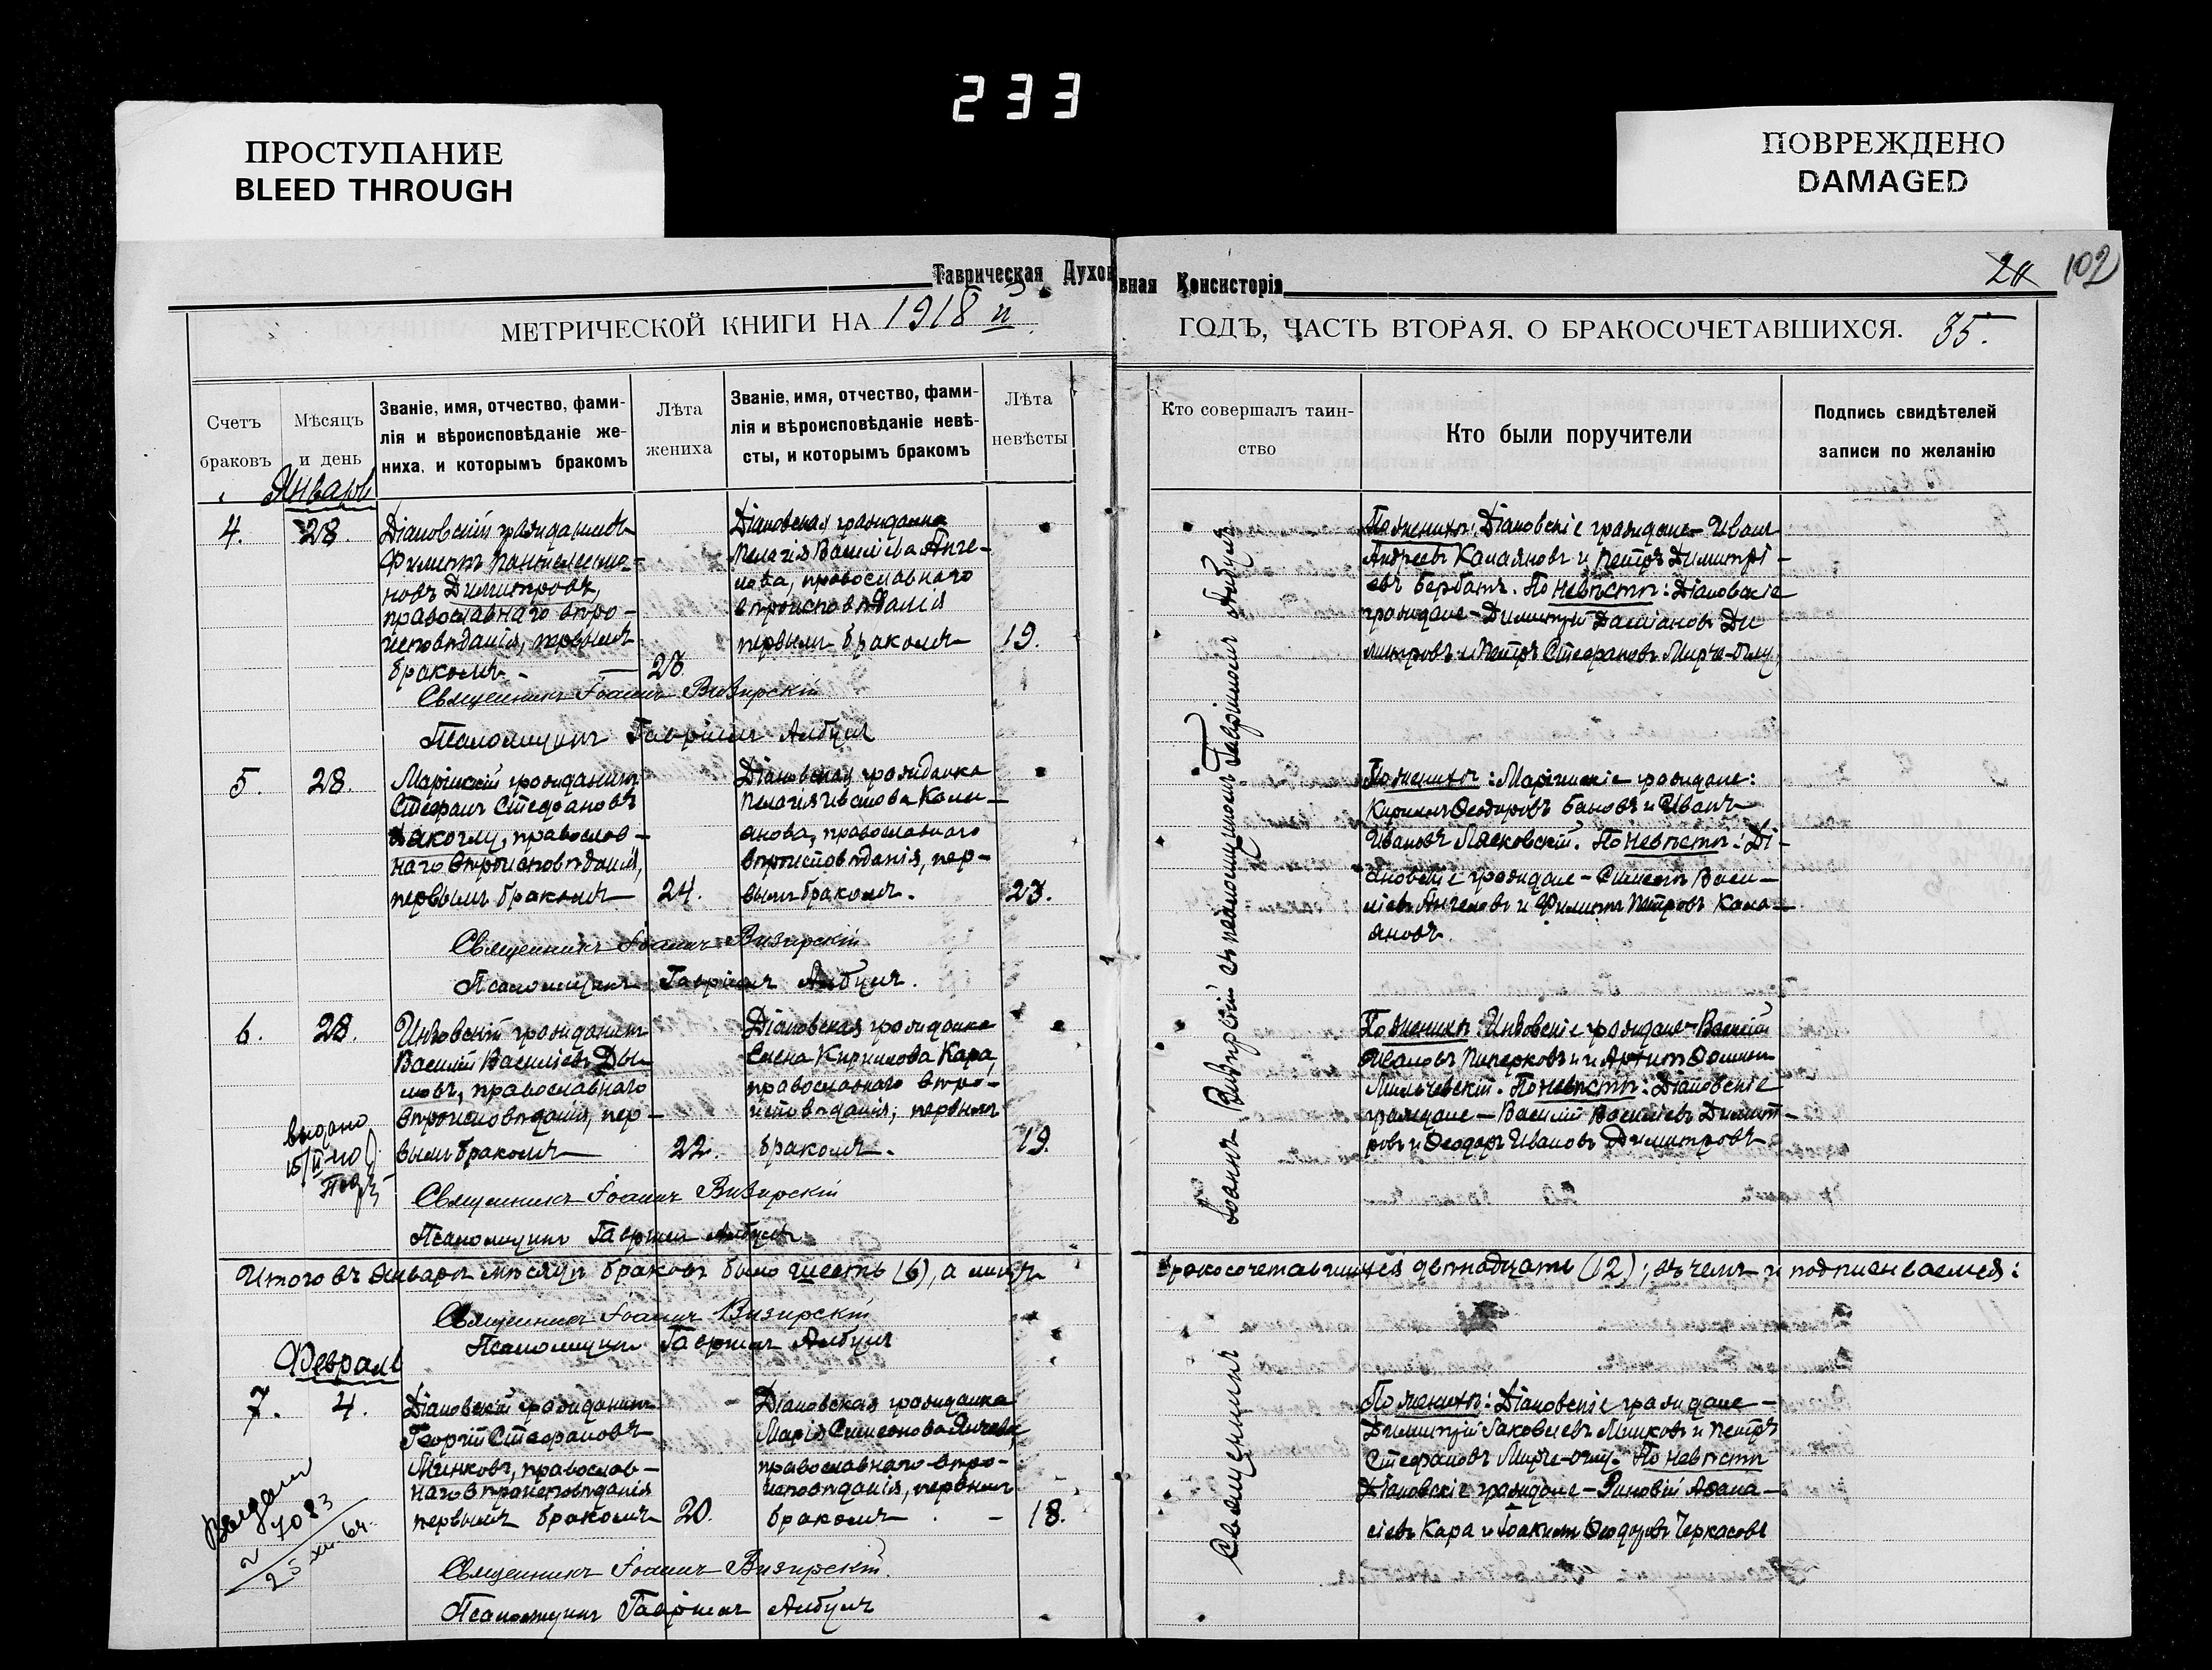 233
ПРОСТУПАНИЕ
BLEED THROUGH
ПОВРЕЖДЕНО
DAMAGED
Таврическая Духов
вная Консисторія
102
МЕТРИЧЕСКОЙ КНИГИ НА 1918 й
ГОДЪ, ЧАСТЬ ВТОРАЯ, О БРАКОСОЧЕТАВШИХСЯ. 35.
Счетъ
браковъ
Мѣсяцъ
и день
Званіе, имя, отчество, фами-
лія и вѣроисповѣданіе же-
ниха, и которымъ бракомъ
Лѣта
жениха
Званіе, имя, отчество, фами-
лія и вѣроисповѣданіе невѣ-
сты, и которымъ бракомъ
Лѣта
невѣсты
Кто совершалъ таин-
ство
Кто были поручители
Подпись свидѣтелей
записи по желанію
Январь
4.
28.
Діановскій гражданинъ
Филиппъ Пантелеимо-
новъ Димитровъ,
православнаго вѣро-
исповѣданія, первымъ
бракомъ
23.
Діановская гражданка
Пелагія Василіева Анге-
лова, православнаго
вѣроисповѣданія
первымъ бракомъ
19.
По женихѣ: Діановскіе граждане – Иванъ
Андреевъ Калаяновъ и Петръ Димитрі-
евъ Бербатъ. По невѣстѣ: Діановскіе
граждане – Димитрій Даміановъ Ди
митровъ и Петръ Стефановъ Мирче-оглу.
Священникъ Іоаннъ Визирскій
Псаломщикъ Гавріилъ Албулъ
5.
28.
Маріинскій гражданинъ
Стефанъ Стефановъ
православ-
наго вѣроисповѣданія,
первымъ бракомъ
24.
Діановская гражданка
Пелагія Иванова Кала-
янова, православнаго
вѣроисповѣданія, пер-
вымъ бракомъ.
23.
По женихѣ: Маріинскіе граждане:
Кириллъ Феодоровъ Бановъ и Иванъ
Ивановъ Лясковскій. По невѣстѣ: Ді-
ановскіе граждане – Симеонъ Васи-
ліевъ Ангеловъ и Филиппъ Петровъ Кала-
яновъ.
Священникъ Іоаннъ Визирскій
Псаломщикъ Гавріилъ Албулъ.
6.
28.
Инзовскій гражданинъ
Василій Василіевъ Ды-
мовъ, православнаго
вѣроисповѣданія, пер-
вымъ бракомъ
22.
Діановская гражданка
Елена Кириллова Кара,
православнаго вѣро-
исповѣданія, первымъ
бракомъ.
19.
По женихѣ: Инзовскіе граждане – Василій
Ивановъ Пиперковъ и
Мильчевскій. По невѣстѣ: Діановскіе
граждане – Василій Василіевъ Димит-
ровъ и Феодоръ Ивановъ Димитровъ
выдано
Священникъ Іоаннъ Визирскій
Псаломщикъ Гавріилъ Албулъ
Итого въ Январѣ мѣсяцѣ браковъ было шесть (6), а лицъ
бракосочетавшихся двѣнадцать (12); въ чемъ и подписываемся:
Священникъ Іоаннъ Визирскій
Псаломщикъ Гавріилъ Албулъ
Февраль
7.
4.
Діановскій гражданинъ
Георгій Стефановъ
Минковъ, православ-
наго вѣроисповѣданія
первымъ бракомъ
20.
Діановская гражданка
Марія Симеонова
православнаго вѣро-
исповѣданія, первымъ
бракомъ
18.
По женихѣ: Діановскіе граждане –
Димитрій Іаковлевъ Минковъ и Петръ
Стефановъ Мирче-оглу. По невѣстѣ
Діановскіе граждане – Зиновій Афана-
сіевъ Кара и Іоакимъ Феодоровъ Черкасовъ
Священникъ Іоаннъ Визирскій.
Псаломщикъ Гавріилъ Албулъ
Священникъ Іоаннъ Визирскій съ псаломщикомъ Гавріиломъ Албулъ